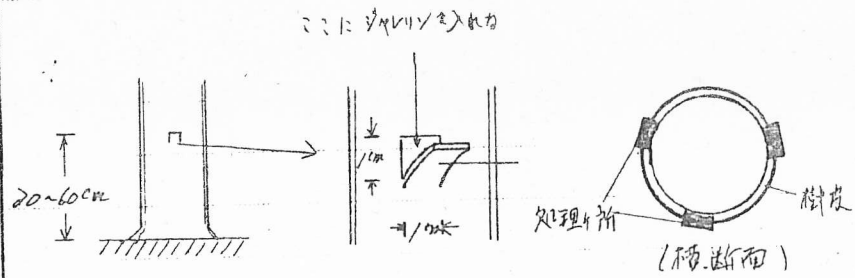 ここにジャレリンを入れる
20~60cm
1cm
1cm
処理ケ所
樹皮
(横断面)